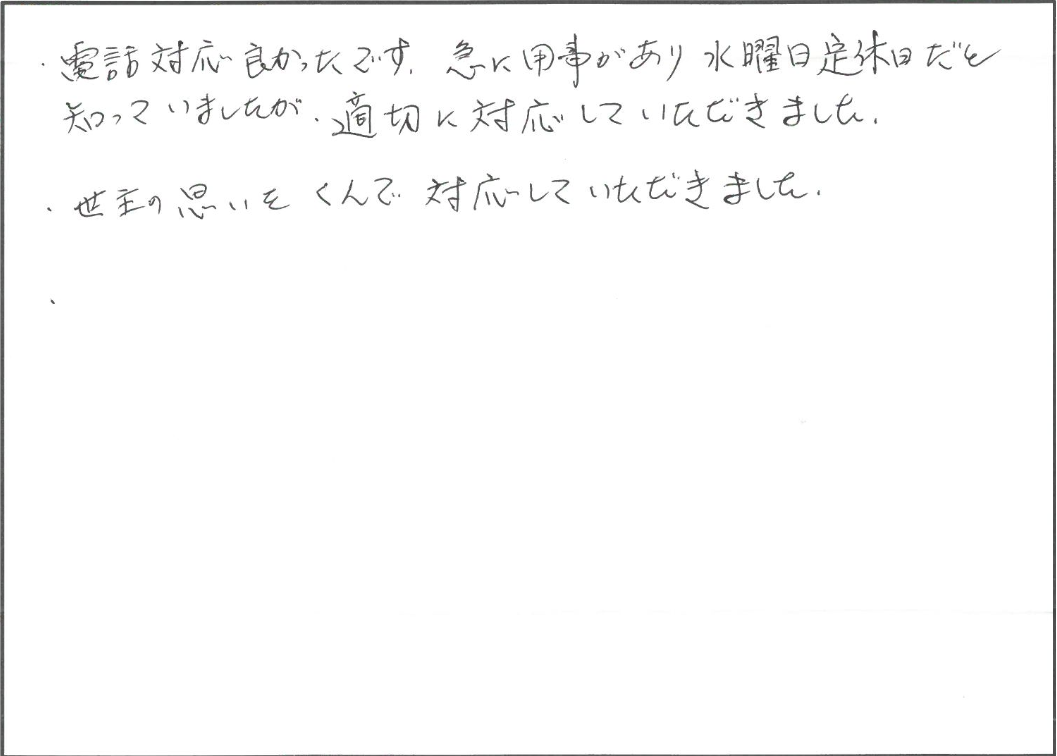 ・電話対応良かったです。急に用事があり水曜日定休日だと
知っていましたが、適切に対応していただきました。
・世主の思いをくんで対応していただきました。
・